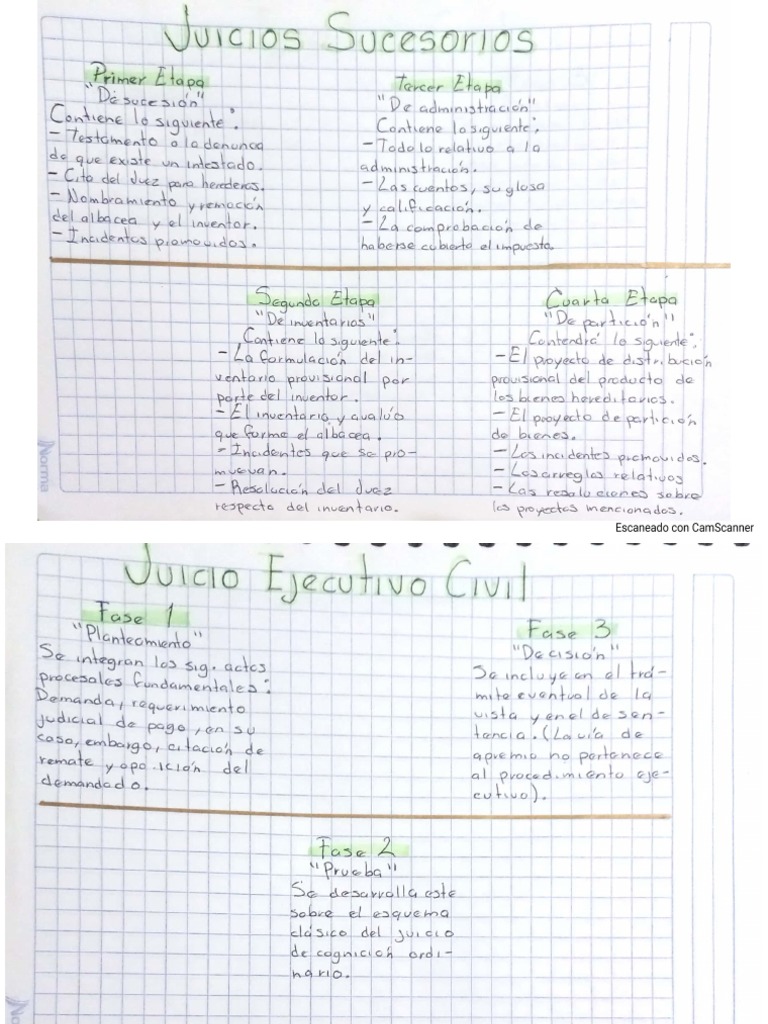 Juicios Sucesorios
Primer Etapa
"De sucesión"
Contiene lo siguiente:
- Testamento o la denunca
de que existe un intestado.
- Cita del Juez para herederos.
- Nombramiento y remoción
del albacea y el inventor.
- Incidentes promovidos.
Tercer Etapa
"De administración"
Contiene lo siguiente:
- Todo lo relativo a la
administración.
- Las cuentas, su glosa
y calificación.
- La comprobación de
haberse cubierto el impuesto.
Segunda Etapa
"De inventarios"
Contiene lo siguiente:
- La formulación del in-
ventario provisional por
parte del inventor.
- El inventario y avalúo
que forme el albacea.
- Incidentes que se pro-
muevan.
- Resolución del Juez
respecto del inventario.
Cuarta Etapa
"De partición"
Contendrá lo siguiente:
- El proyecto de distribución
provisional del producto de
los bienes hereditarios.
- El proyecto de partición
de bienes.
- Los incidentes promovidos.
- Los arreglos relativos
- Las resoluciones sobre
los proyectos mencionados.
Norma
Escaneado con CamScanner
Juicio Ejecutivo Civil
Fase 1
"Planteamiento"
Se integran los sig. actos
procesales fundamentales:
Demanda, requerimiento
judicial de pago, en su
caso, embargo, citación de
remate y oposición del
demandado.
Fase 3
"Decisión"
Se incluye en el trá-
mite eventual de la
vista y en el de sen-
tencia. (La vía de
apremio no pertenece
al procedimiento eje-
cutivo).
Fase 2
"Prueba"
Se desarrolla este
sobre el esquema
clásico del juicio
de cognición ordi-
nario.
No